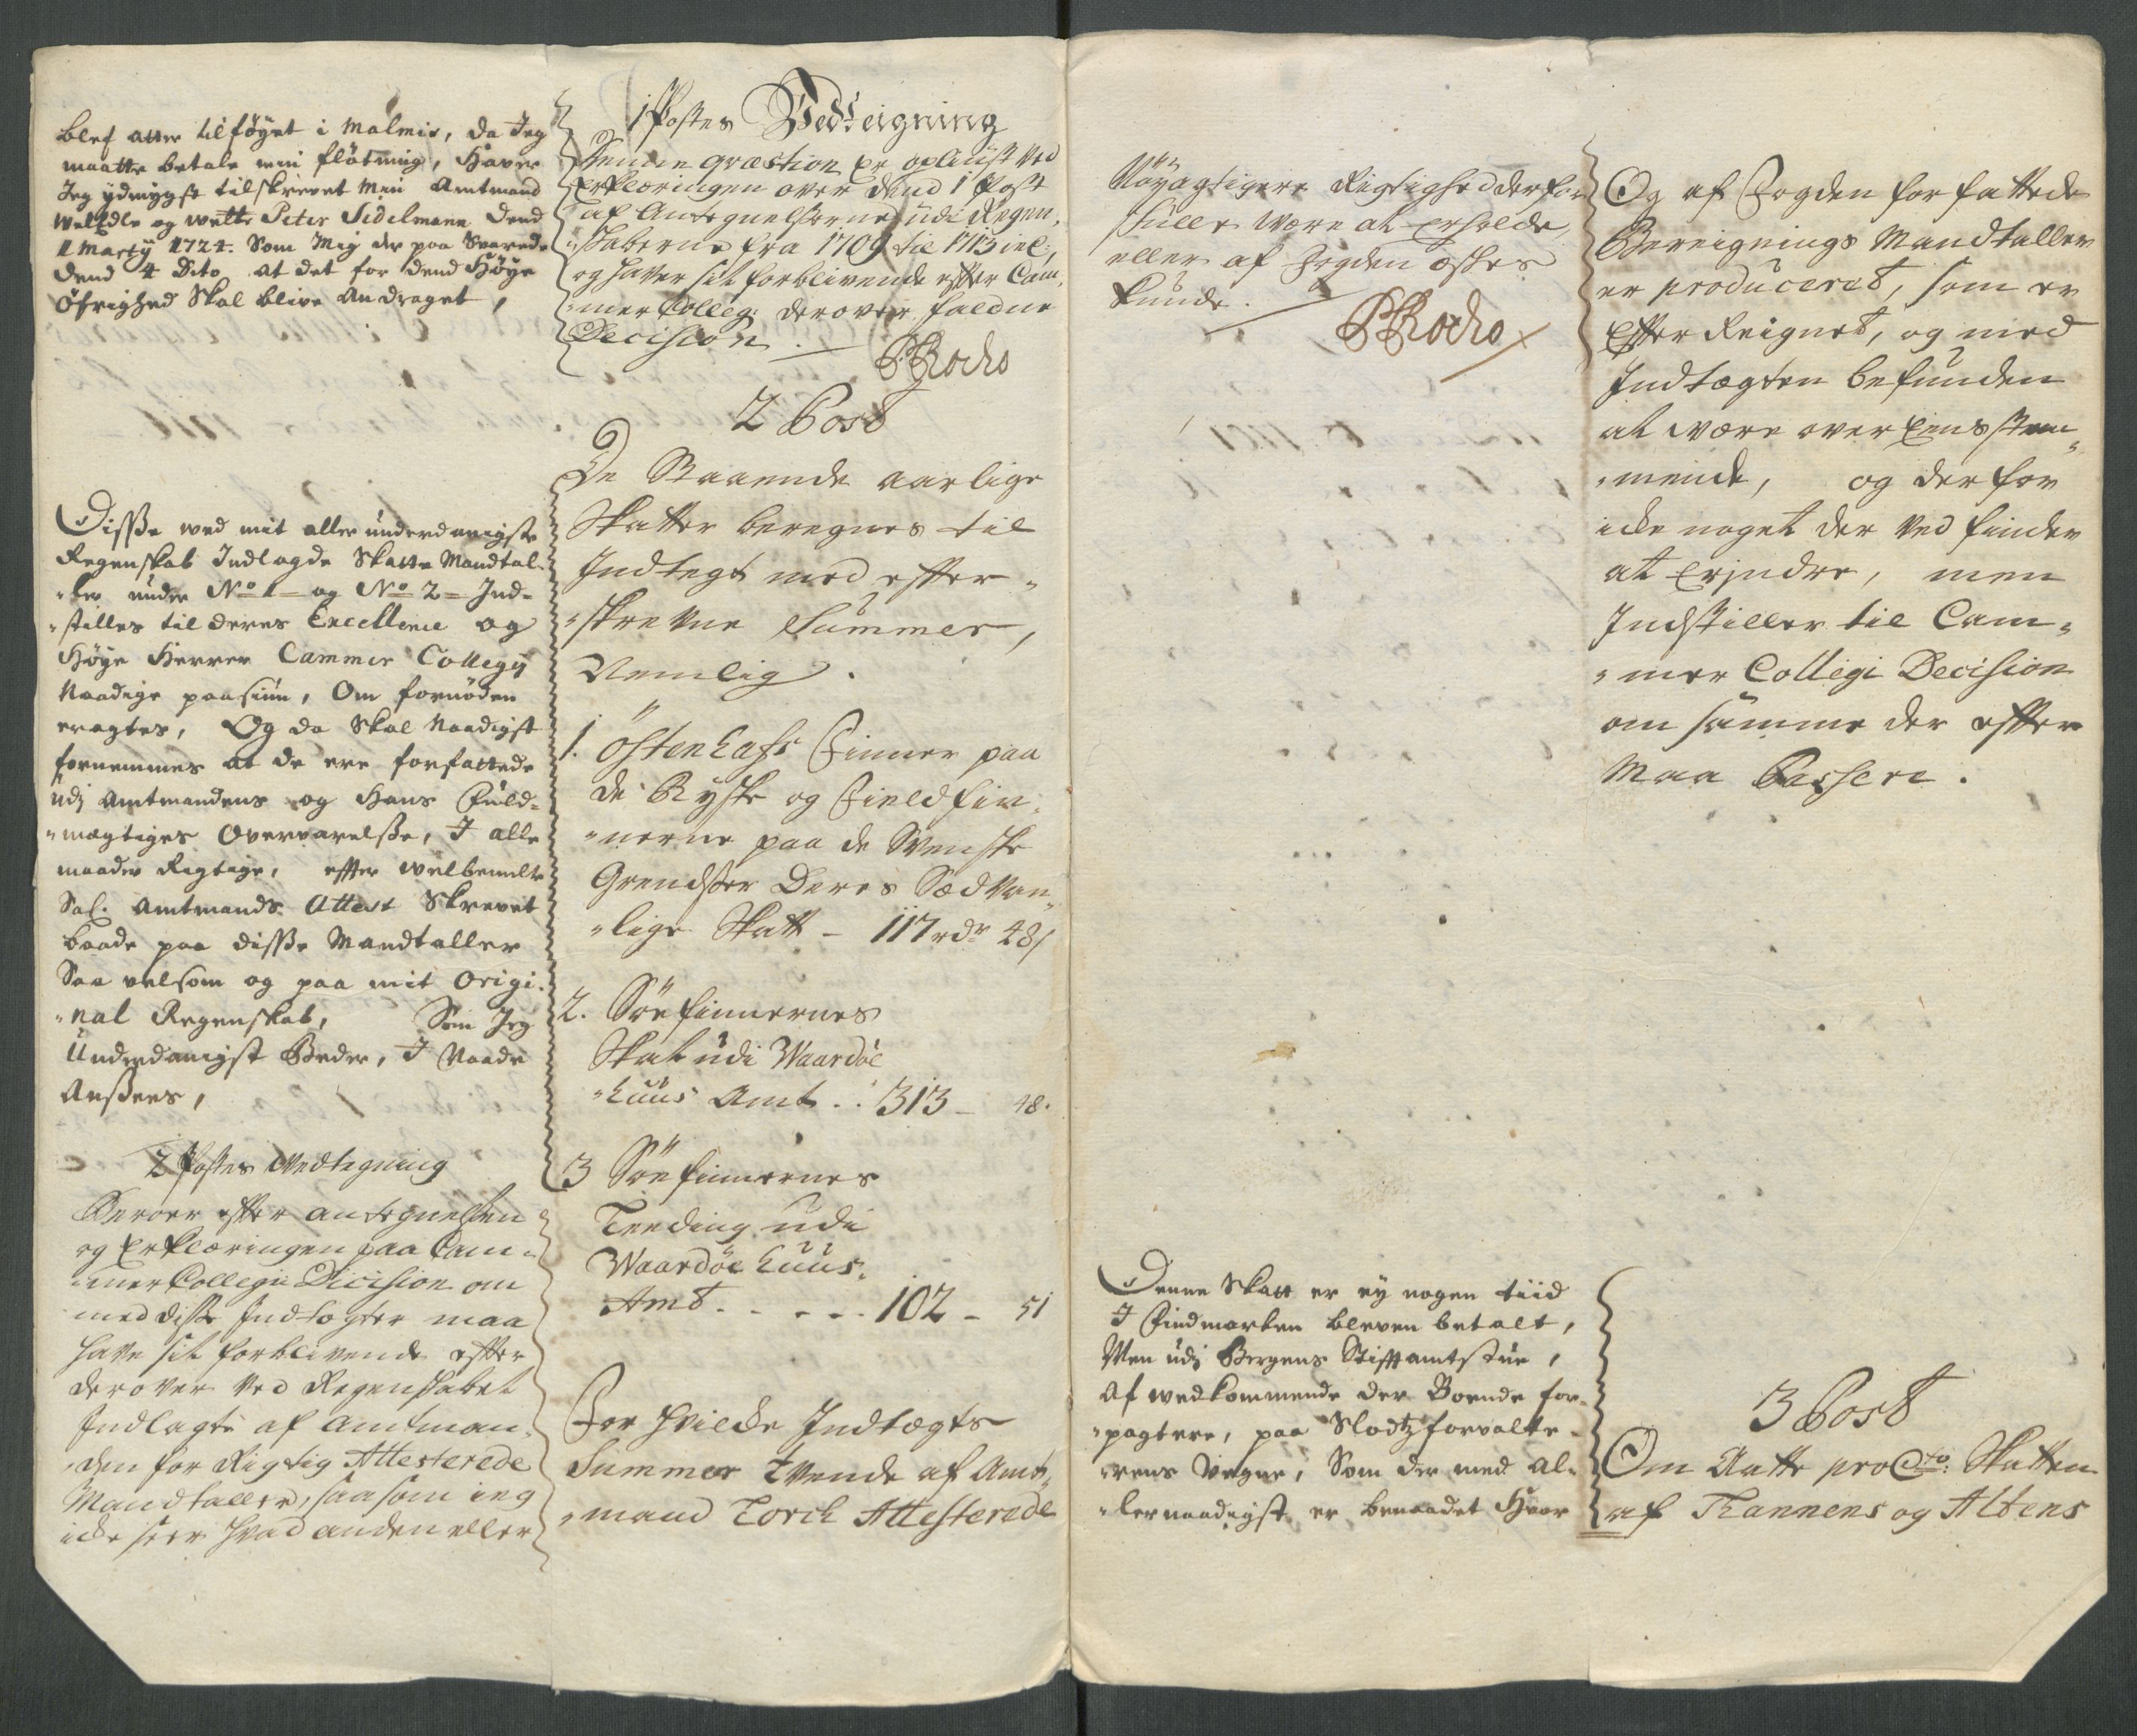 blef atter tilføyet i Malmis, da Jeg
maatte betale min fløtning, Haver
Jeg ydmygst tilskrevet Min Amtmand
WelEdle og welbr Peter Sidelmann Dend
1 Marty 1724. Som Mig der paa Svarede
Dend 4 Dito at det for dend Høye
Øfrighed Skal blive Andraget,
Disse ved mit aller underdanigste
Regenskab Indlagde Skatte Mandtal-
"ler under No 1 og No 2 = Ind-
"stilles til deres Excellence og
Høye Herrer Cammer Collegy
Naadige paasiun, Om fornøden
eragtes, Og da Skal Naadigst
fornemmes at de ere forfattede
udj Amtmandens og Hans Fuld-
"mægtiges Overværelse, I alle
maader Rigtige, efter welbemelte
Sal. Amtmands Attest Skrevet
baade paa disse Mandtaller
Saa velsom og paa mit Origi-
"nal Regenskab, Som Jeg
Underdanigst Beder, I Naade
Ansees,
2 Postes Vedtegning
Beroer efter antegnelsen
og Erklæringen paa Cam-
"mer Collegii Dicision om
med disse Indtogter maa
have sit forblivende efter
derover ved Regenskabet
Indlagte af Amtman-
"den for Rigtig Attesterede
Mandtaller, saasom ieg
icke seer hvad anden eller
1 Postes Vedteigning
Denne Qvæstion er opliust ved
Erklæringen over dend 1 Post
af Antegnelserne udi Regen-
"skaberne fra 1709 til 1713 incl:
og haver sit forblivende efter Cam-
"mer Colleg: derover faldne
Decision. PBRocho
2 Post
De Staaende aarlige
Skatter beregnes til
Indtegt med efter-
"skrevne Summer,
Nemlig.
1. Østenhafs Finner paa
de Ryske og Fieldfin-
"nerne paa de Svenske
Grendser Deres Sædvan-
"lige Skatt - 117 rdr 48 s
2. Søefinnernes
Skat udi Waardøe
"huus Amt .. 313 - 48.
3 Søefinnernes
Leeding udi
Waardøe huus.
Amt. - - - .. 102 - 51
For hvilcke Indtægts
Summer tvende af Amt-
"mand Lorch Attesterede
Nøyagtigere Rigtighed derfor
skulle være at erholde
eller af Fogden æskes
kunde. PBRocho
Denne Skatt er ey nogen tiid
I Findmarken bleven betalt,
Men udj Bergens Stiftamtstue,
Af wedkommende der Boende for-
"pagtere, paa Slodtzforvalte-
"rens Vegne, Som der med al-
"lernaadigst er benaadet Hvor
Og af Fogden forfattede
Bereignings Mandtaller
er produceret, som er
Efter Reignet, og med
Indtægten befunden
at være overEensstem-
"mende, og derfor
icke noget der ved finder
at Erjndre, men
Indstiller til Cam-
"mer Collegi Decision
om samme der efter
Maa Passere.
3 Post
Om Aatte pro Cto: Skatten
af Trannens og Altens